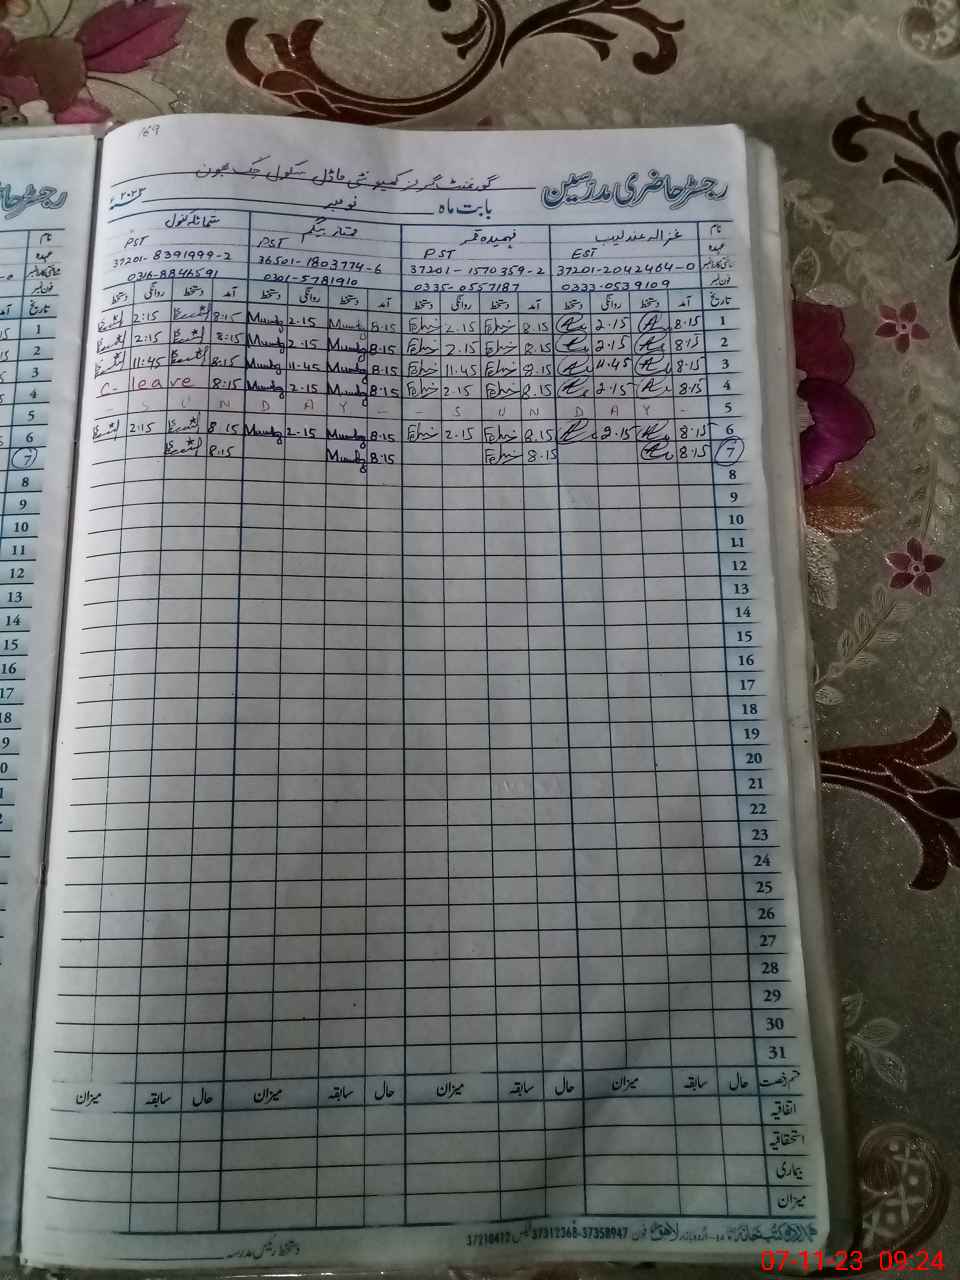 169
رجسٹر حاضری مدرسین
گورنمنٹ گرلز کمیونٹی ماڈل سکول چک
بابت ماہ نومبر ۲۰۲۳ء
نام غزالہ عندلیب فہمیدہ قمر ممتاز بیگم شمائلہ کنول
عہدہ EST PST PST PST
شناختی کارڈ نمبر 37201-2042464-0 37201-1570359-2 36501-1803774-6 37201-8391999-2
فون نمبر 0333-0539109 0335-0557187 0301-5781910 0316-8846591
تاریخ آمد دستخط روانگی دستخط آمد دستخط روانگی دستخط آمد دستخط روانگی دستخط آمد دستخط روانگی دستخط
1 8.15 2.15 8.15 2.15 8.15 2.15 8:15 2:15
2 8.15 2.15 8.15 2.15 8.15 2.15 8:15 2:15
3 8.15 11.45 8.15 11.45 8.15 11.45 8.15 11:45
4 8.15 2.15 8.15 2.15 8.15 2.15 8:15 C- leave
5 - S U N D A Y - - S U N D A Y -
6 8.15 2.15 8.15 2.15 8.15 2.15 8.15 2:15
7 8.15 8.15 8.15 8.15
8
9
10
11
12
13
14
15
16
17
18
19
20
21
22
23
24
25
26
27
28
29
30
31
قسم رخصت حال سابقہ میزان حال سابقہ میزان حال سابقہ میزان حال سابقہ میزان
اتفاقیہ
استحقاقیہ
بیماری
میزان
اردو بازار لاہور فون 37358947-37312368 فیکس 37210412
دستخط رئیس مدرسہ
07-11-23 09:24